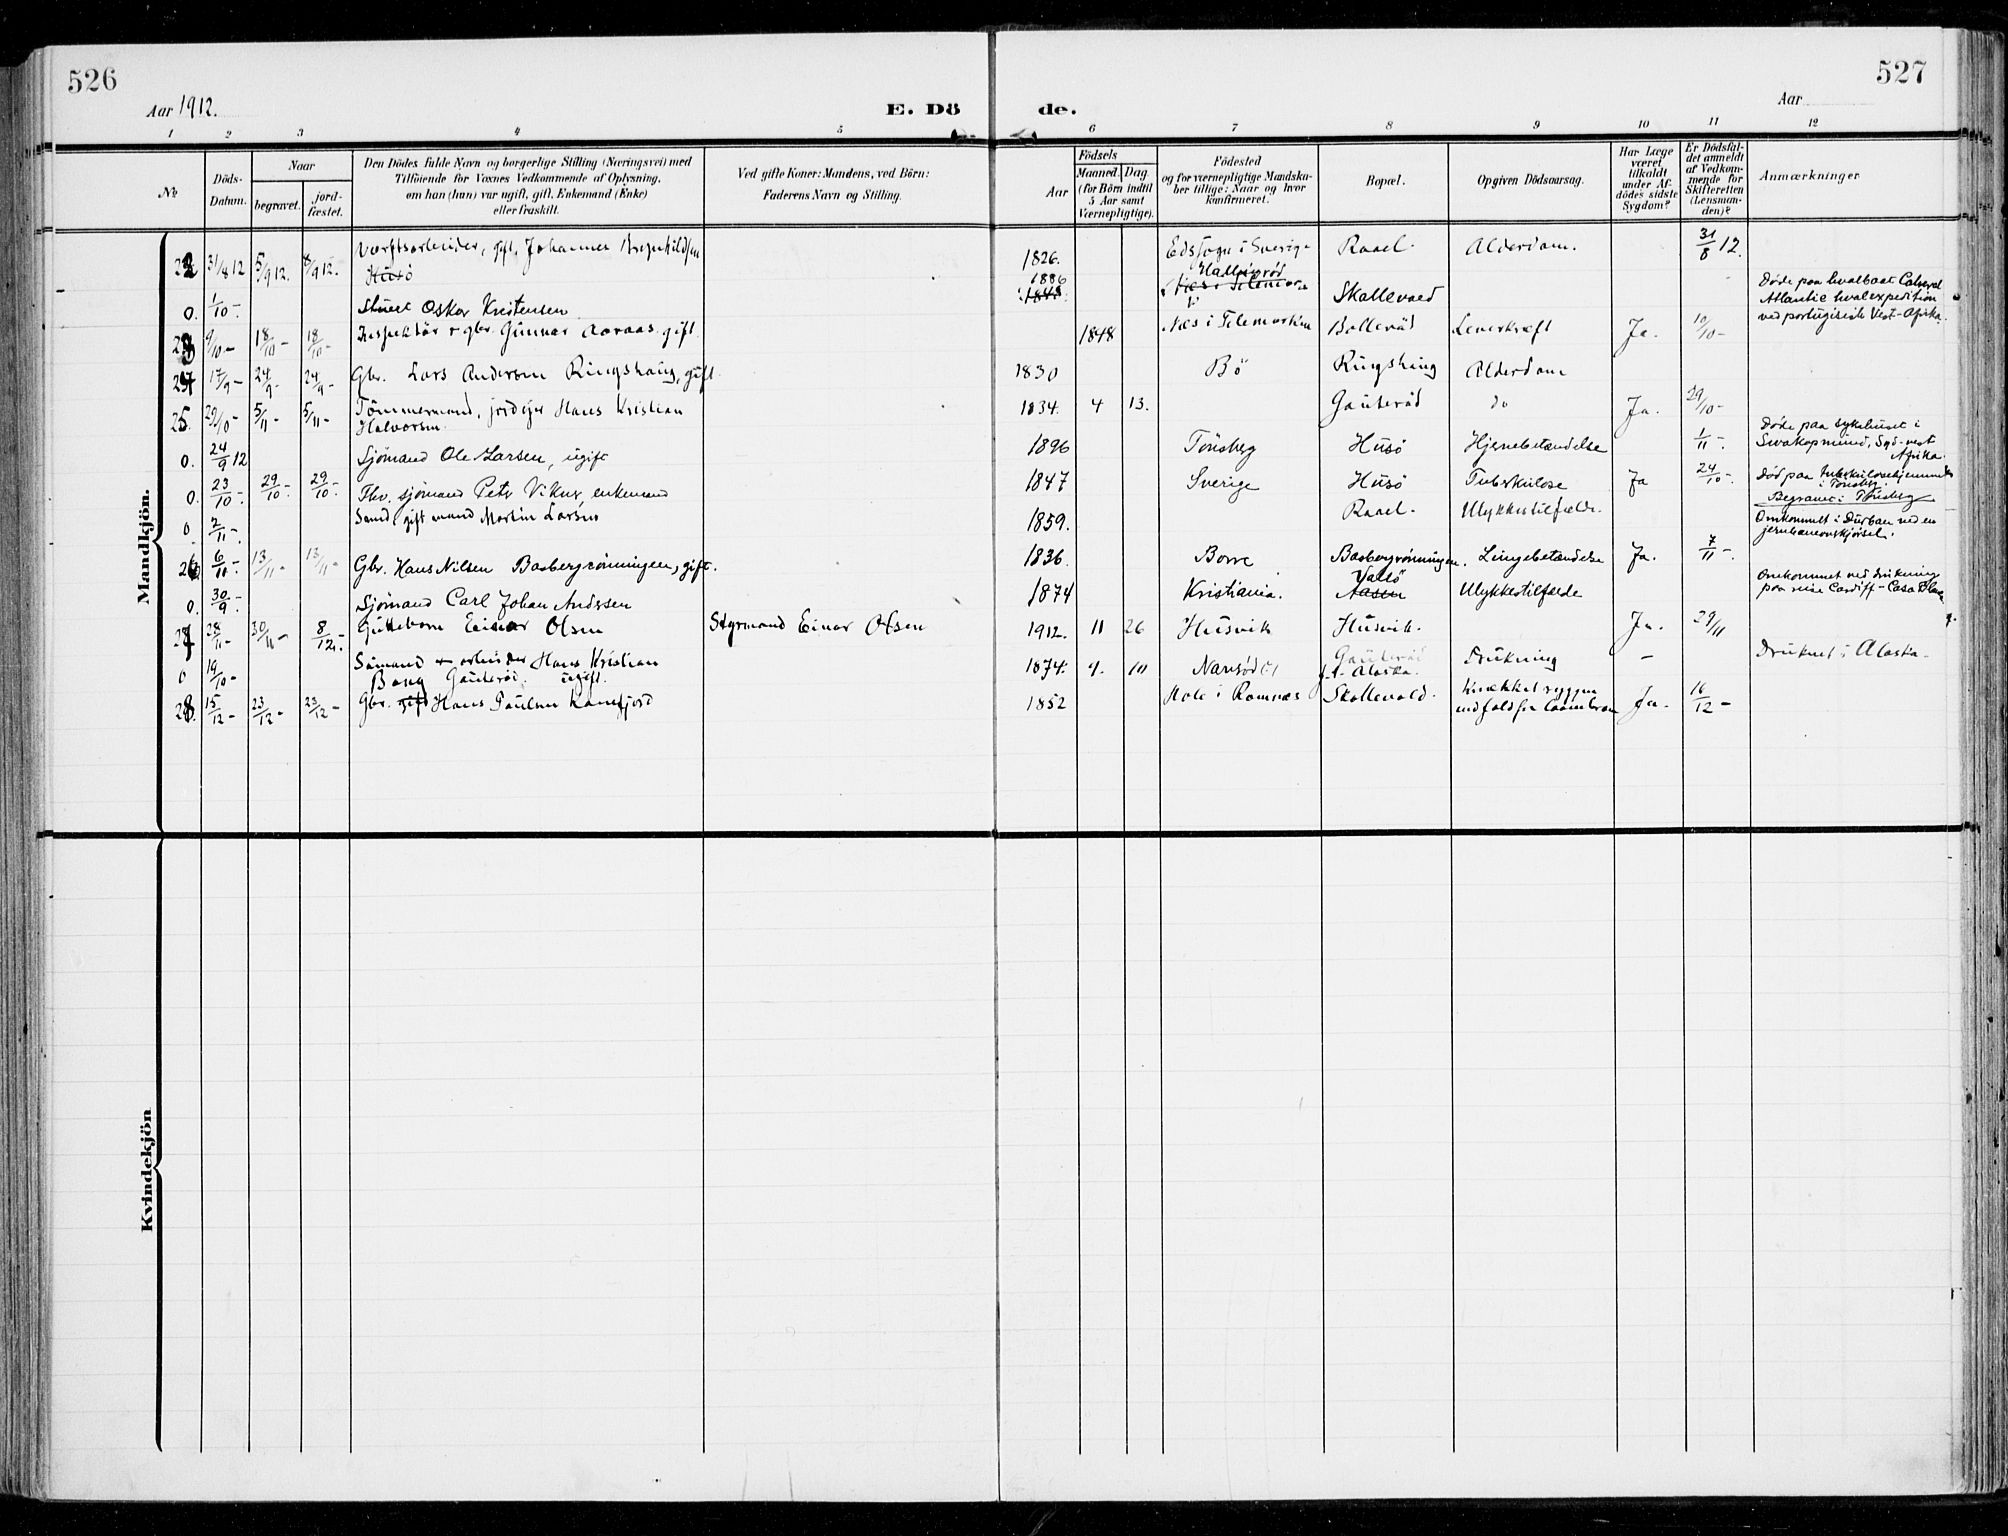 526
527
Aar 1912.
E. Dö de.
Aar
1 2 3 4 5 6 7 8 9 10 11 12
No.
Döds-Datum.
Naar
begravet.
jord-fæstet.
Den Dödes fulde Navn og borgerlige Stilling (Næringsvei) med
Tilföiende for Voxnes Vedkommende af Oplysning,
om han (hun) var ugift, gift, Enkemand (Enke)
eller fraskilt.
Ved gifte Koner: Mandens, ved Börn:
Faderens Navn og Stilling.
Födsels
Aar
Maaned. Dag.
(for Börn indtil
5 Aar samt
Værnepligtige).
Födested
og for værnepligtige Mandska-
ber tillige: Naar og hvor
konfirmeret.
Bopæl.
Opgiven Dödsaarsag.
Har Læge
været
tilkaldt
under Af-
dödes sidste
Sygdom?
Er Dödsfal-
det anmeldt
af Vedkom-
mende for
Skifteretten
(Lensman-
den)?
Anmærkninger
Mandkjön.
22 31/8 12 5/9 12. 8/9 12. Værftsarbeider, gift, Johannes Brynhildsen 1826. Edssogn i Sverige Raael. Alderdom. 31/8 12.
Husö
0. 1/10 - Oskar Kristensen 1886 1848 Skallevold Døde paa hvalbaat
Atlantic hvalexpedition
ved portugisisk Vest-Afrika.
23 9/10 - 18/10 - 18/10 - Inspektör & gbr. Gunnar Aaraas. gift. 1848 Næs i Telemarken Bolleröd Leverkræft Ja. 10/10 -
24 17/9 - 24/9 - 24/9 - Gbr. Lars Andersen Ringshaug, gift 1830 Bö Ringshaug Alderdom
25. 29/10 - 5/11 - 5/11 - Tömmermand, jordeier Hans Kristian 1834. 4 13. Gauteröd do Ja. 29/10 -
Halvorsen.
0. 24/9 12 Sjömand Ole Larsen, ugift 1896 Tönsberg Husö Hjernebetændelse 1/11 - Døde paa sykehuset i
Swakopmund, Syd-vest
Afrika.
0. 23/10 - 29/10 - 29/10 - Fhv. sjömand Peter Viker, enkemand 1847 Sverige Husö Tuberkulose Ja 24/10 - Død paa tuberkulosehjemmet
i Tönsberg.
Begravet i Tönsberg
0. 2/11 - gift mand Martin Larsen 1859. Raael. Ulykkestilfælde. Omkommet i Durban ved en
26 6/11 - 13/11 - 13/11 - Gbr. Hans Nilsen Basbergrönningen, gift. 1836. Borre Basbergrönningen. Lungebetændelse Ja. 7/11 -
0. 30/9 - Sjömand Carl Johan Andersen 1874 Kristiania. Vallö Aasen Ulykkestilfælde Omkommet ved drukning
paa reise Cardiff-Casa Blanca
27 28/11 - 30/11 - 8/12 - Guttebarn Einar Olsen Styrmand Einar Olsen 1912. 11 26 Husvik Husvik. Ja. 29/11
0 19/10 - Sömand & arbeider Hans Kristian 1874. 9. 10 Gauteröd Drukning - Druknet i Alaska -
Bang Gauteröd. ugift. Alaska.
28. 15/12 - 23/12 - 23/12 - Gbr. gift Hans Paulsen Lanefjord 1852 i Ramnæs Skallevold. Knækket ryggen Ja. 16/12 -
ved fald fra laavebroen
Kvindekjön